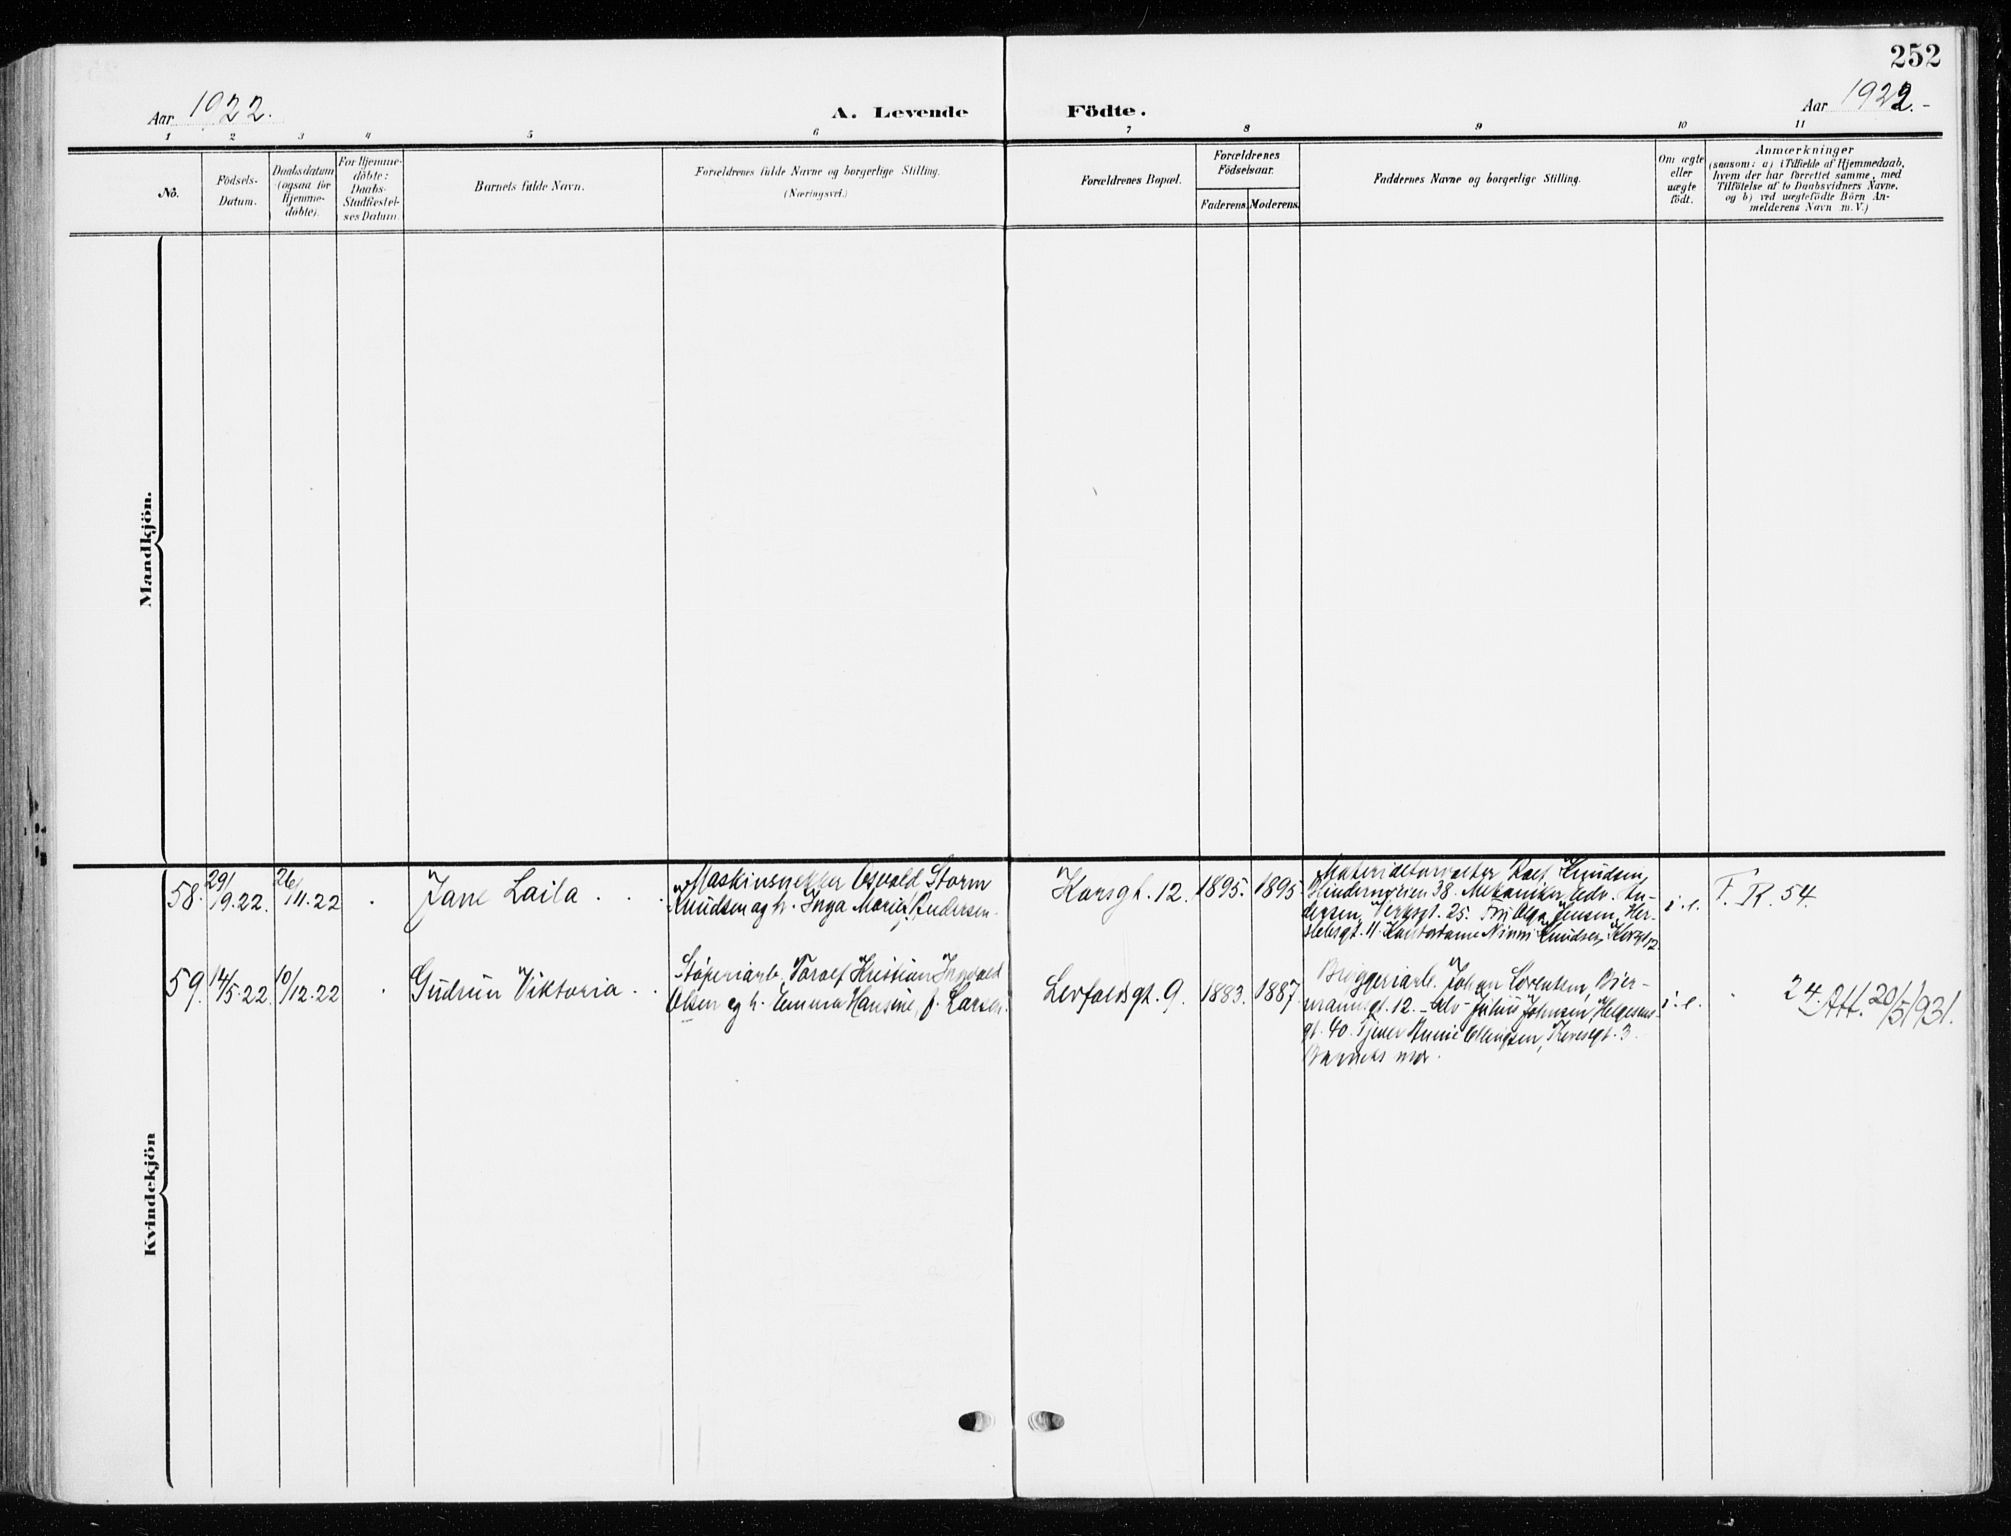 252
Aar 1922.
A. Levende Födte.
Aar 1922.-
1 2 3 4 5 6 7 8 9 10 11
No.
Födsels-
Datum.
Daabsdatum
(ogsaa for
Hjemme-
döbte).
For Hjemme-
döbte:
Daabs-
Stadfæstel-
ses Datum.
Barnets fulde Navn.
Forældrenes fulde Navne og borgerlige Stilling.
(Næringsvei.)
Forældrenes Bopæl.
Forældrenes
Födselsaar.
Faderens. Moderens.
Faddernes Navne og borgerlige Stilling.
Om ægte
eller
uægte
födt.
Anmærkninger
(saasom: a) i Tilfælde af Hjemmedaab,
hvem der har forrettet samme, med
Tilföielse af to Daabsvidners Navne.
og b) ved uægtefödte Börn An-
melderens Navn m. V.)
Mandkjön.
Kvindekjön
58.
29/9.22.
26/11.22
Jane Laila
Maskinsnekker Osvald Storm
Knudsen og h. Inga Marie Andersen
Korsgt. 12.
1895.
1895
Materialforvalter Rolf Knudsen,
38. Mekaniker Edv. An-
dersen, Verksgt. 25. Fru Olga Jensen, Her-
slebsgt. 11. Kontordame Knudsen, Korsgt. 12
i. e.
F. R. 54.
59.
14/5.22
10/12.22
Gudrun Viktoria
Støperiarb. Toralf Kristian Ingvald
Olsen og h. Emma Hansine, f. Larsen.
Levfaldsgt. 9.
1883.
1887.
Bryggeriarb. Johan Lorentzen, Bier-
mannsgt. 12. Julius Johnsen, Helgesens
gt. 40. Annie Ellingsen, 3
Barnets mor.
i. e.
24. Att. 20/5 1931.